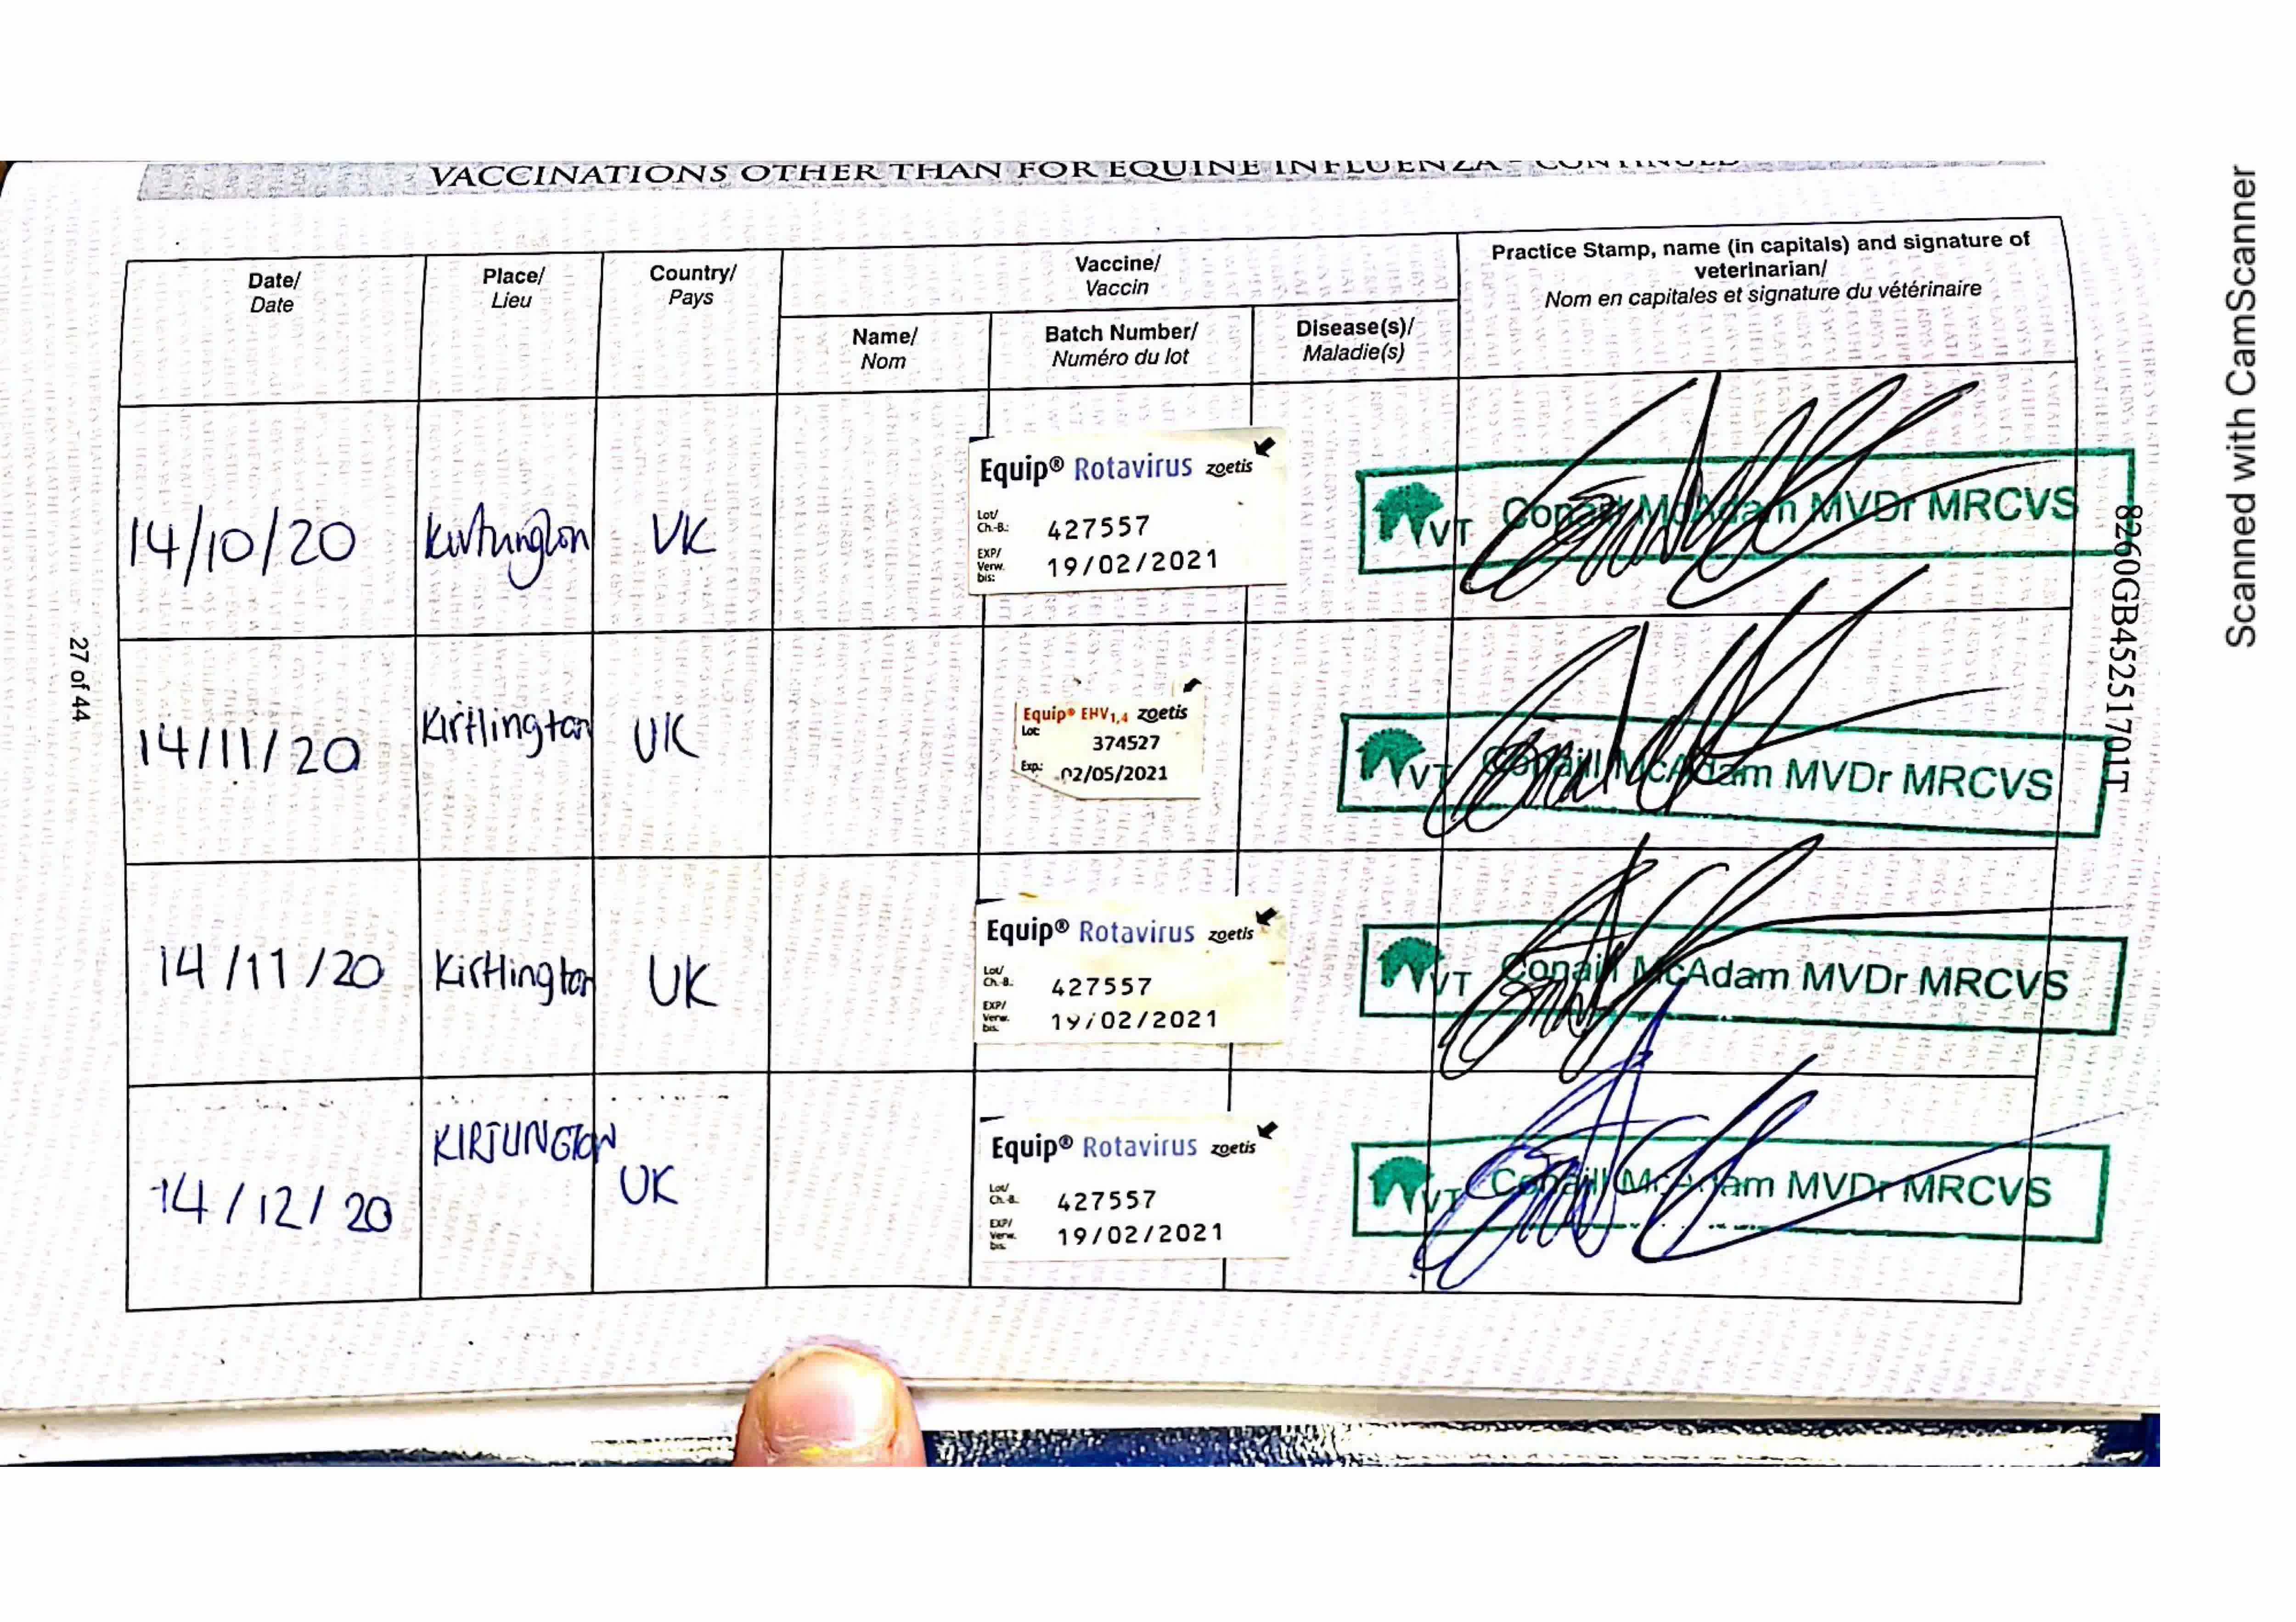 VACCINATIONS OTHER THAN FOR EQUINE INFLUENZA - CONTINUED
Date/
Date
Place/
Lieu
Country/
Pays
Vaccine/
Vaccin
Name/
Nom
Batch Number/
Numéro du lot
Disease(s)/
Maladie(s)
Practice Stamp, name (in capitals) and signature of
veterinarian/
Nom en capitales et signature du vétérinaire
14/10/20
Kirtlington
UK
Equip® Rotavirus zoetis
Lot/
Ch.-B.: 427557
EXP/
Verw.
bis: 19/02/2021
VT Conaill McAdam MVDr MRCVS
14/11/20
Kirtlington
UK
Equip® EHV1,4 zoetis
Lot: 374527
Exp.: 02/05/2021
VT Conaill McAdam MVDr MRCVS
14/11/20
Kirtlington
UK
Equip® Rotavirus zoetis
Lot/
Ch.-B. 427557
EXP/
Verw.
bis. 19/02/2021
VT Conaill McAdam MVDr MRCVS
14/12/20
KIRTLINGTON
UK
Equip® Rotavirus zoetis
Lot/
Ch.-B. 427557
EXP/
Verw.
bis. 19/02/2021
VT Conaill McAdam MVDr MRCVS
27 of 44
8260GB45251701T
Scanned with CamScanner